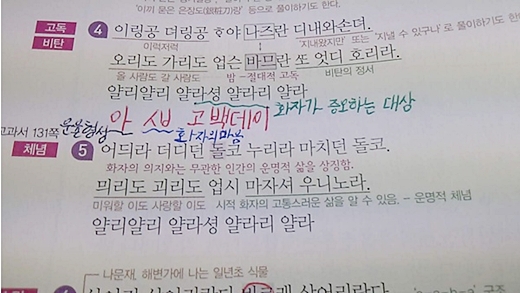 '이끼 묻은 은장도(銀粧刀)랑' 등으로 풀이하기도 한다.
고독 4 이링공 뎌링공 ᄒᆞ야 나즈란 디내와손뎌.
이럭저럭 '지내왔지만' 또는 '지낼 수 있구나'로 풀이하기도 한
비탄 오리도 가리도 업슨 바므란 또 엇디 호리라.
올 사람도 갈 사람도 밤-절대적 고독 비탄의 정서
얄리얄리 얄라셩 얄라리 얄라
아 씨 고백데이 화자가 증오하는 대상
교과서 131쪽 운율형성 화자의 마음
체념 5 어듸라 더디던 돌코 누리라 마치던 돌코.
화자의 의지와는 무관한 인간의 운명적 삶을 상징함.
믜리도 괴리도 업시 마자셔 우니노라.
미워할 이도 사랑할 이도 시적 화자의 고통스러운 삶을 알 수 있음. - 운명적 체념
얄리얄리 얄라셩 얄라리 얄라
나문재, 해변가에 나는 일년초 식물